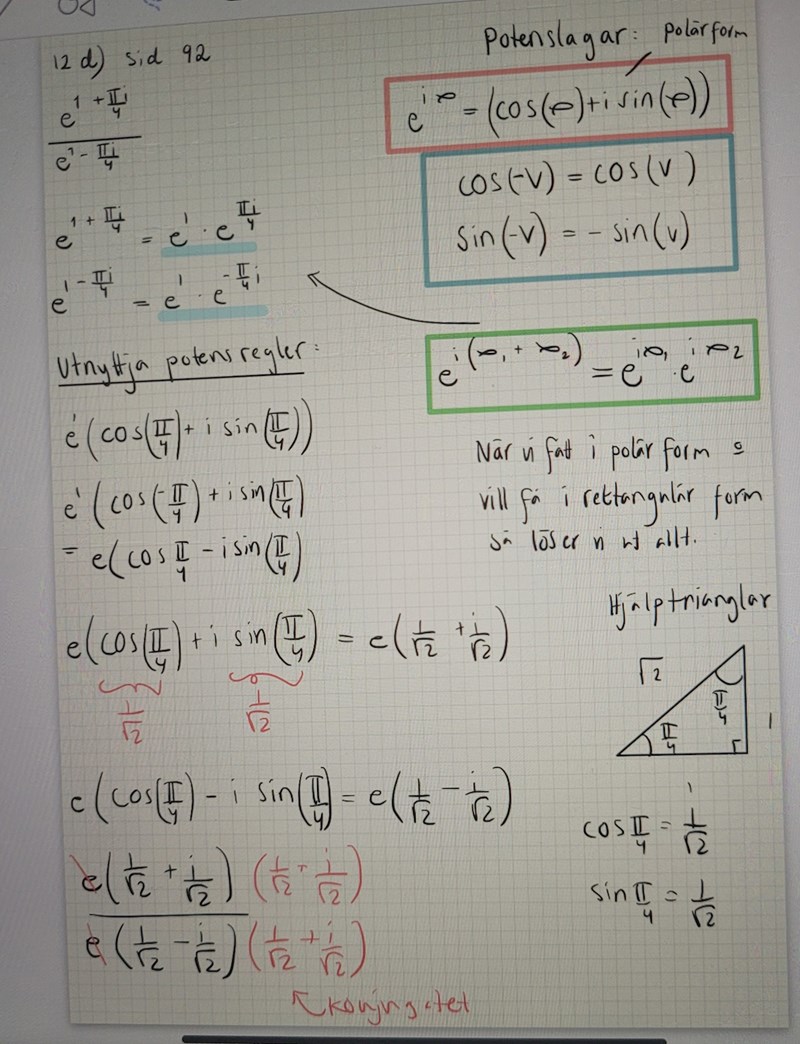 12 d) sid 92
Potenslagar: polärform
e^{1+πi/4}
e^{1-πi/4}
e^{iφ} = (cos(φ)+i sin(φ))
cos(-v) = cos(v)
sin(-v) = - sin(v)
e^{1+πi/4} = e^1 · e^{πi/4}
e^{1-πi/4} = e^1 · e^{-π/4 i}
e^{i(φ_1+φ_2)} = e^{iφ_1} · e^{iφ_2}
Utnyttja potensregler:
e^1(cos(π/4)+ i sin(π/4))
e^1(cos(-π/4)+i sin(π/4)
= e(cos π/4 - i sin(π/4)
När vi fått i polär form o
vill få i rektangulär form
så löser vi ut allt.
Hjälptrianglar
e(cos(π/4)+i sin(π/4) = e(1/√2 + i/√2)
1/√2 1/√2
√2
π/4
π/4
1
1
e(cos(π/4) - i sin(π/4) = e(1/√2 - i/√2)
cos π/4 = 1/√2
sin π/4 = 1/√2
e(1/√2 + i/√2) (1/√2 + i/√2)
e(1/√2 - i/√2) (1/√2 + i/√2)
konjugatet